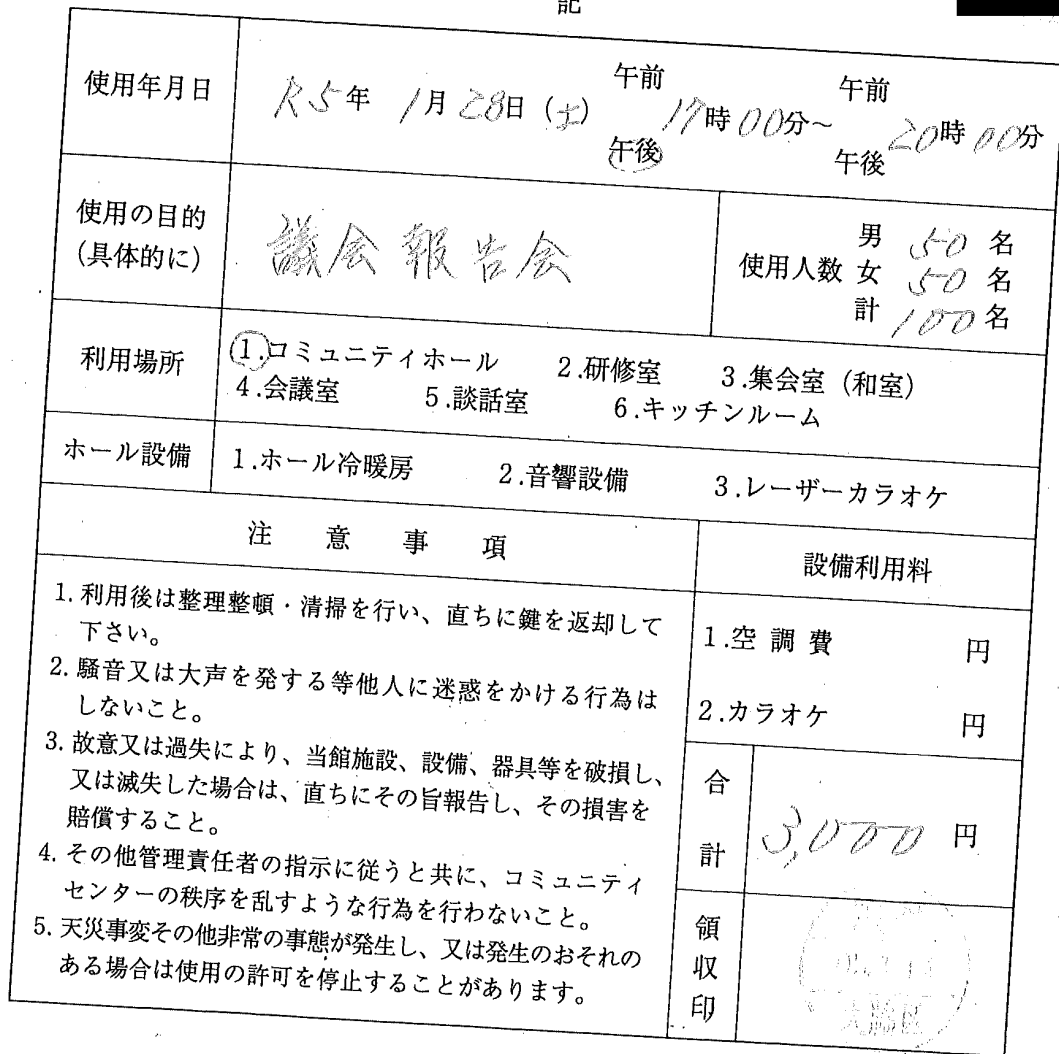 記
使用年月日 R5年 1月28日(土) 午前 午後 17時00分~ 午前 午後 20時00分
使用の目的
(具体的に)
議会報告会
使用人数 男 50名
女 50名
計 100名
利用場所
1.コミュニティホール 2.研修室 3.集会室(和室)
4.会議室 5.談話室 6.キッチンルーム
ホール設備 1.ホール冷暖房 2.音響設備 3.レーザーカラオケ
注意事項
設備利用料
1.利用後は整理整頓・清掃を行い、直ちに鍵を返却して
下さい。
2.騒音又は大声を発する等他人に迷惑をかける行為は
しないこと。
3.故意又は過失により、当館施設、設備、器具等を破損し、
又は滅失した場合は、直ちにその旨報告し、その損害を
賠償すること。
4.その他管理責任者の指示に従うと共に、コミュニティ
センターの秩序を乱すような行為を行わないこと。
5.天災事変その他非常の事態が発生し、又は発生のおそれの
ある場合は使用の許可を停止することがあります。
1.空調費 円
2.カラオケ 円
合計 3,000円
領収印